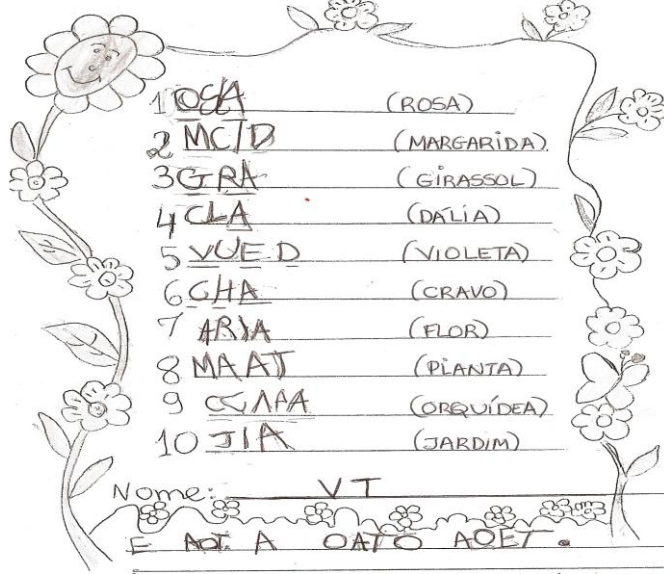 1 OSA (ROSA)
2 MCID (MARGARIDA)
3 GRA (GIRASSOL)
4 CLA (DÁLIA)
5 VUED (VIOLETA)
6 CHA (CRAVO)
7 ARIA (FLOR)
8 MAAT (PLANTA)
9 (ORQUÍDEA)
10 JIA (JARDIM)
Nome: VT
E AOT. A OATO AOET.